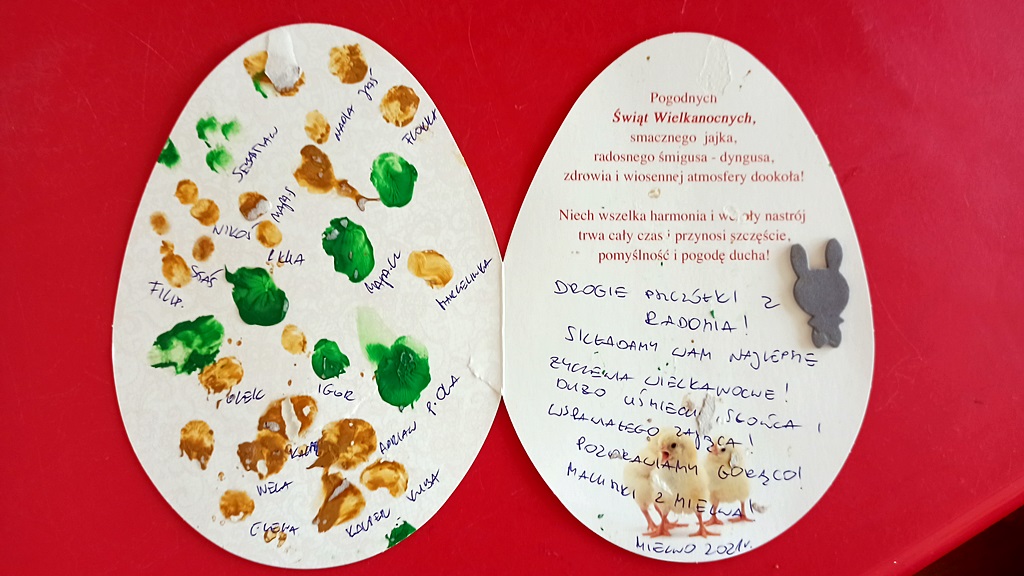 Jaś
NADIA
SEBASTIAN
MAJA.S
NIKOŚ
STAŚ
FILIP.
MAJA.Ł
MARCELINKA
OLEK
IGOR
P. OLA
ADRIAN
NELA
KACPER
KUBA
Pogodnych
Świąt Wielkanocnych,
smacznego jajka,
radosnego śmigusa - dyngusa,
zdrowia i wiosennej atmosfery dookoła!
Niech wszelka harmonia i nastrój
trwa cały czas i przynosi szczęście,
pomyślność i pogodę ducha!
DROGIE PSZCZÓŁKI Z
RADOMIA!
SKŁADAMY WAM NAJLEPSZE
ŻYCZENIA WIELKANOCNE!
DUŻO UŚMIECHU, SŁOŃCA I
WSPANIAŁEGO ZAJĄCA!
POZDRAWIAMY GORĄCO!
MALUSZKI Z MIELNA!
MIELNO 2021r.